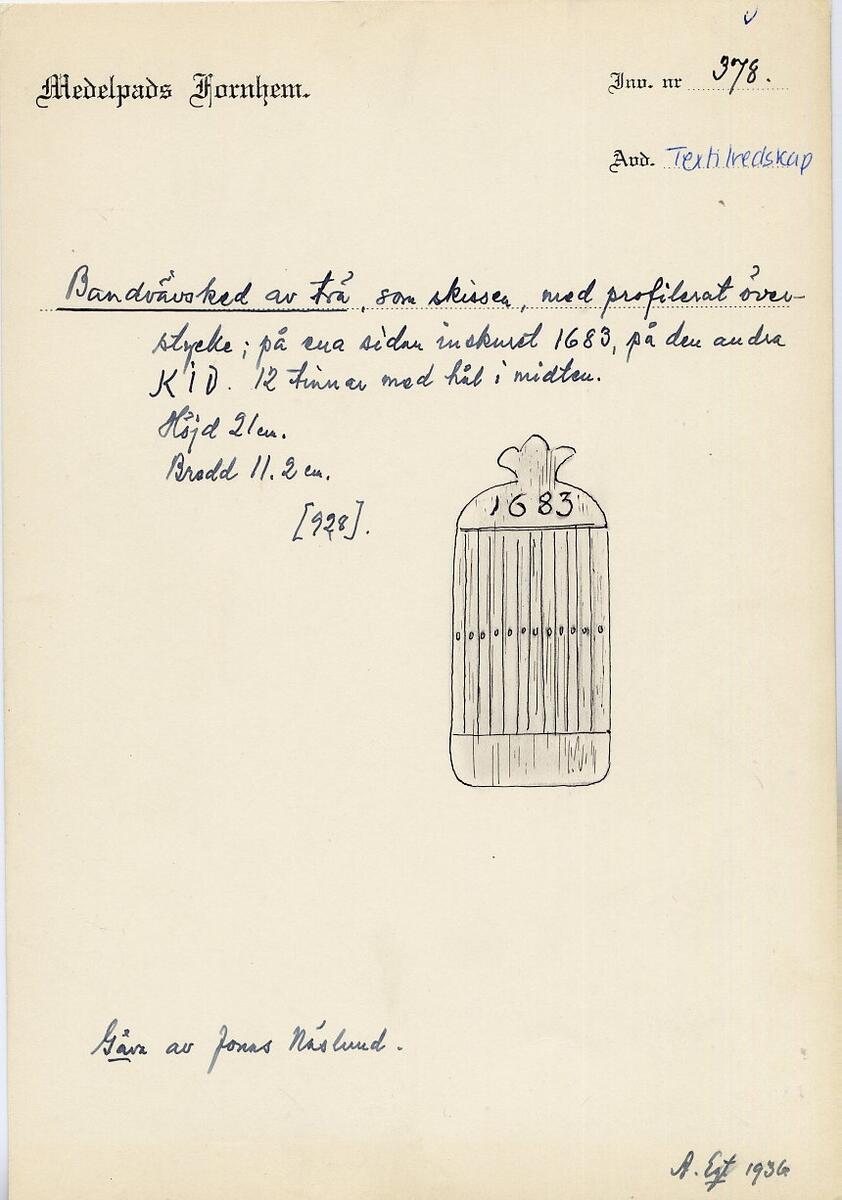 Medelpads Fornhem.
Inv. nr 378.
Avd. Textilredskap
Bandvävsked av trä, som skissen, med profilerat över-
stycke; på ena sidan inskuret 1683, på den andra
K I D. 12 tinnar med hål i midten.
Höjd 21 cm.
Bredd 11.2 cm.
[928].
1683
Gåva av Jonas Näslund.
A. Egt 1936